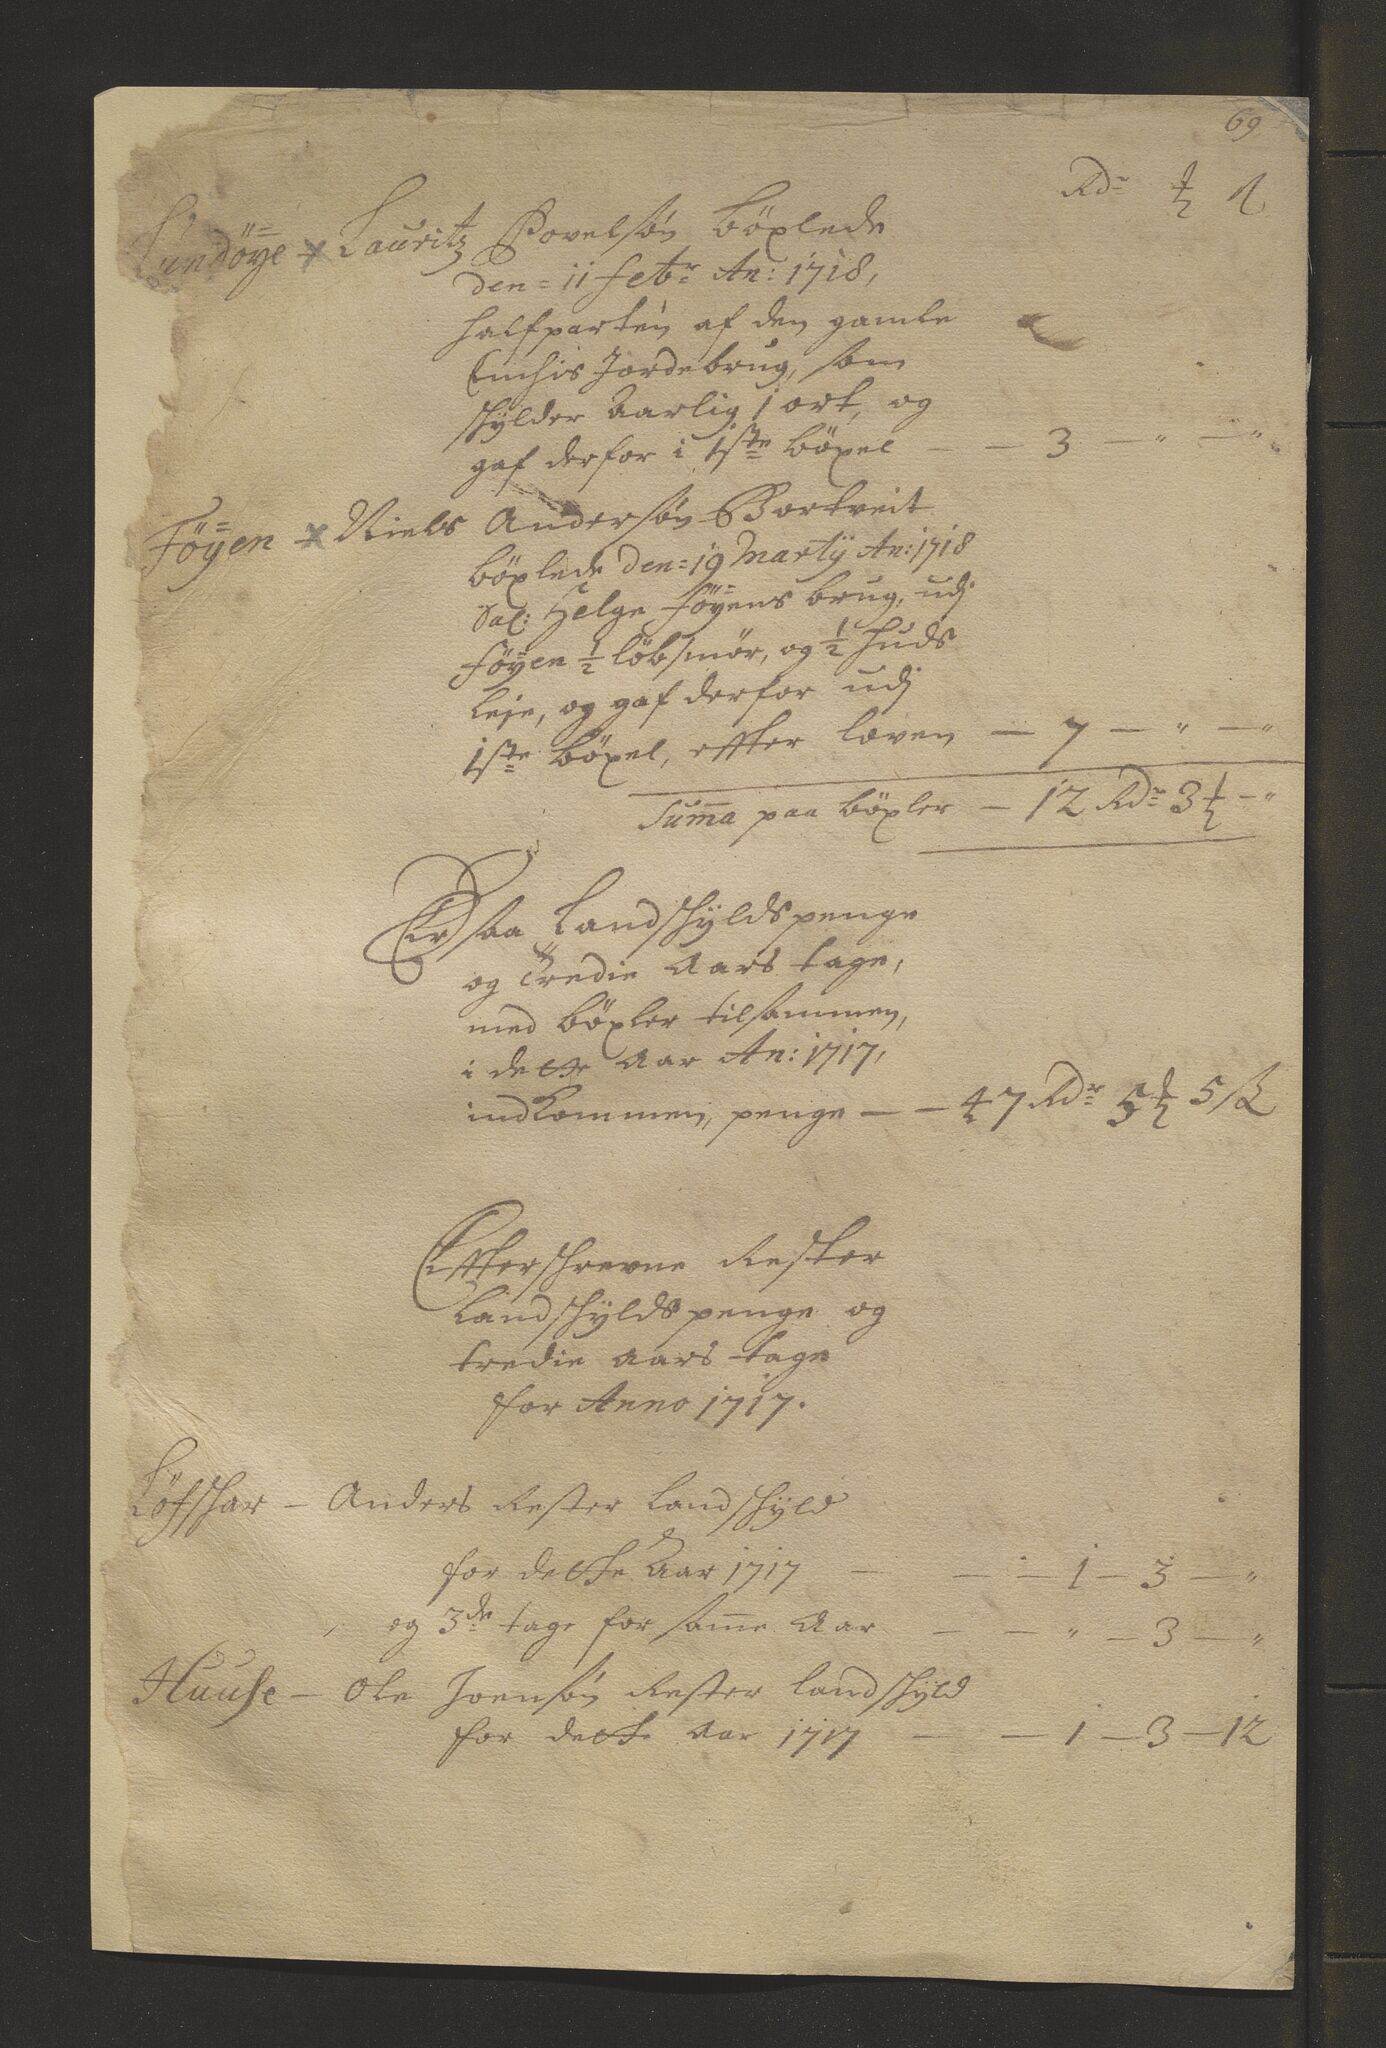 69
Rdr ß
Lundöye x Lauritz Povelsøn böxlede
den = 11 febr: An: 1718,
halfparten af den gamle
Jordebrug, som
schylder Aarlig 1 ort, og
gaf derfor i 1ste böxel — — 3 — " — "
Föyen x Niels Andersøn Bortveit
böxlede den = 19 Marty An: 1718
Sal: Helge Föyens brug, udj
föyen ½ löb smør, og ½ huds
leje, og gaf derfor udj
1ste böxel, effter loven — 7 — " — "
Summa paa böxler — 12 Rdr 3 — "
Er saa Landschyldspenge
og tredie Aars tage,
med böxler tilsammen,
i dette Aar An: 1717,
indkommen, penge — — 47 Rdr 5 5 ß
Effterschrevne Rester
Landschyldspenge og
tredie aars tage
for Anno 1717.
Löfschar — Anders Rester Landschyld
for dette Aar 1717 — — — 1 — 3 — "
og 3de tage for samme Aar — — " — 3 — "
Huuse — Ole Joensøn Rester landschyld
for dette Aar 1717 — — 1 — 3 — 12